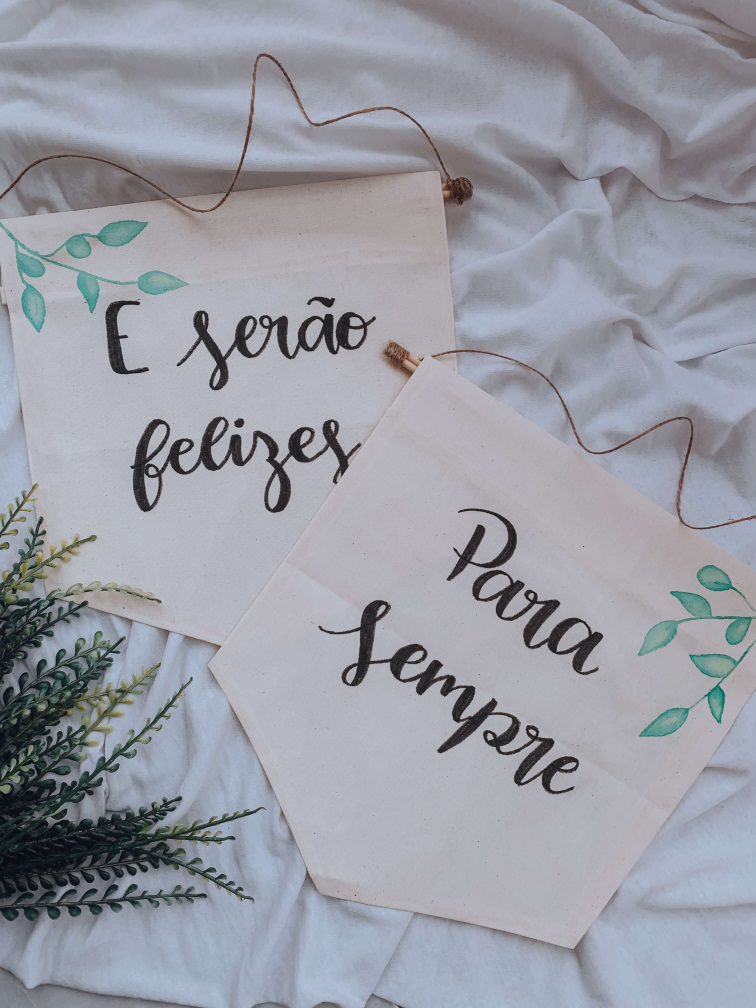 E serão
felizes
Para
sempre